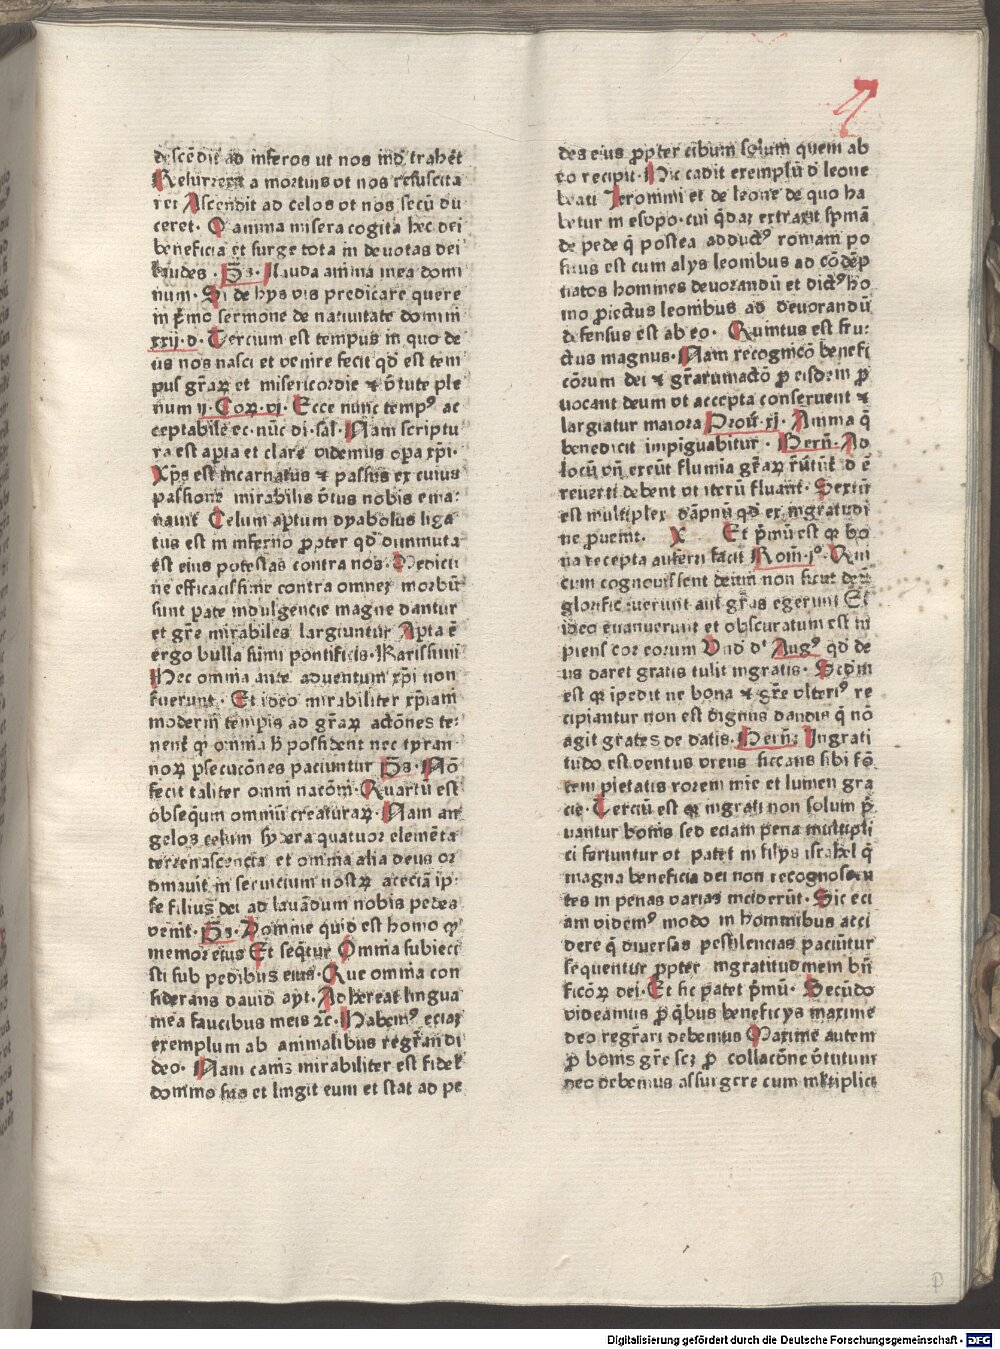 descēdit ad inferos ut nos ind̕ trahēt
Resurrexit a mortuis vt nos resuscita
ret Ascendit ad celos vt nos secū du
ceret. O anima misera cogita hec dei
beneficia et surge tota in deuotas dei
laudes. p̄s. Lauda anima mea domi
num. Si de hys vis predicare quere
in p̄mo sermone de natiuitate domini
xxij.d. Tercium est tempus in quo de
us nos nasci et venire fecit qd̄ est tem
pus gr̄aꝝ et misericordie ⁊ v̄tute ple
num ij. Coꝝ.vj. Ecce nunc tempꝰ ac
ceptabile ec. nūc di. sal. Nam scriptu
ra est apta et clare videmus opa xp̄i.
Xp̄s est incarnatus ⁊ passus ex cuius
passione mirabilis v̄tus nobis ema
nauit Celum aptum dyabolus liga
tus est in inferno ꝓpter qd̄ diminuta
est eius potestas contra nos. Medici
ne efficacissime contra omnes morbū
sunt pate indulgencie magne dantur
et gr̄e mirabiles largiuntur Apta ē
ergo bulla sūmi pontificis. Karissimi
Hec omnia ante aduentum xp̄i non
fuerunt. Et ideo mirabiliter xp̄iani
moderni tempis ad gr̄aꝝ actōnes te
nent᷑ qꝛ omnia h̄ possident nec tyran
noꝝ ꝑsecucōnes paciuntur p̄s. Nō
fecit taliter omni nacōni. Quartū est
obsequm omniū creaturaꝝ. Nam an
gelos celum sydera quatuor elemēta
terrenascencia et omnia alia deus or
dinauit in seruicium nostꝝ aceciā ip
se filius dei ad lauādum nobis pedes
venit. p̄s. Domine quid est homo qꝛ
memor eius Et seq̄tur Omnia subieci
sti sub pedibus eius. Que omnia con
siderans dauid ayt. Adhereat lingua
mea faucibus meis ⁊c. Habemꝰ eciaꝫ
exemplum ab animalibus regr̄andi
deo. Nam canis mirabiliter est fidel̕
domino suo et lingit eum et stat ad pe
des eius ꝓpter cibum solum quem ab
eo recipit. Hic cadit exemplū d̕ leone
beati Jeronimi et de leone de quo ha
betur in esopo. cui q̄dā extraxit spinā
de pede q̄ postea adductꝰ romam po
situs est cum alys leonibus ad cōdēp
natos homines deuorandū et dictꝰ ho
mo ꝓiectus leonibus ad deuorandū
defensus est ab eo. Quintus est fru
ctus magnus. Nam recognicō benefi
cōrum dei ⁊ gr̄arumactō ꝓ eisdem ꝓ
uocant deum vt accepta conseruent ⁊
largiatur maiora Prou̕. xj. Anima q̄
benedicit impiguabitur. Bern̄. Ad
locū vn̄ exeūt flumina gr̄aꝝ r̄uūt d̕ ē
reuerti debent vt iterū fluant. Sextū
est multiplex dāpnū qd̄ ex ingratudi
ne ꝓuenit. X Et p̄mū est qꝛ bo
na recepta auferri facit Rom̄. jͦ. Qui
cum cognouissent deum non sicut deū
glorificauerunt aut gr̄as egerunt Et
ideo euanuerunt et obscuratum est in
sipiens cor eorum Vnd̕ d̕ Augꝰ qd̄ de
us daret gratis tulit ingratis. Scdm
est qꝛ īpedit ne bona ⁊ gr̄e vlteriꝰ re
cipiantur non est dignus dandis q̄ nō
agit grates de datis. Bern̄: Ingrati
tudo est ventus vrens siccans sibi fō
tem pietatis rorem mīe et lumen gra
cie. Terciū est qꝛ ingrati non solum p̄
uantur bonis sed eciam pena multipli
ci feriuntur vt patet in filys israhel q̄
magna beneficia dei non recognoscen
tes in penas varias inciderūt. Sic eci
am videmꝰ modo in hominibus acci
dere q̄ diuersas pestilencias paciūtur
sequentur ꝓpter ingratitudinem bn̄
ficōꝝ dei. Et sic patet p̄mū. Secūdo
videamus ꝓ q̄bus beneficys maxime
deo regr̄ari debemus Maxime autem
ꝓ bonis gr̄e scꝫ ꝓ collacōne v̄tutum
deo debemus assurgere cum multiplici
p
Digitalisierung gefördert durch die Deutsche Forschungsgemeinschaft - DFG